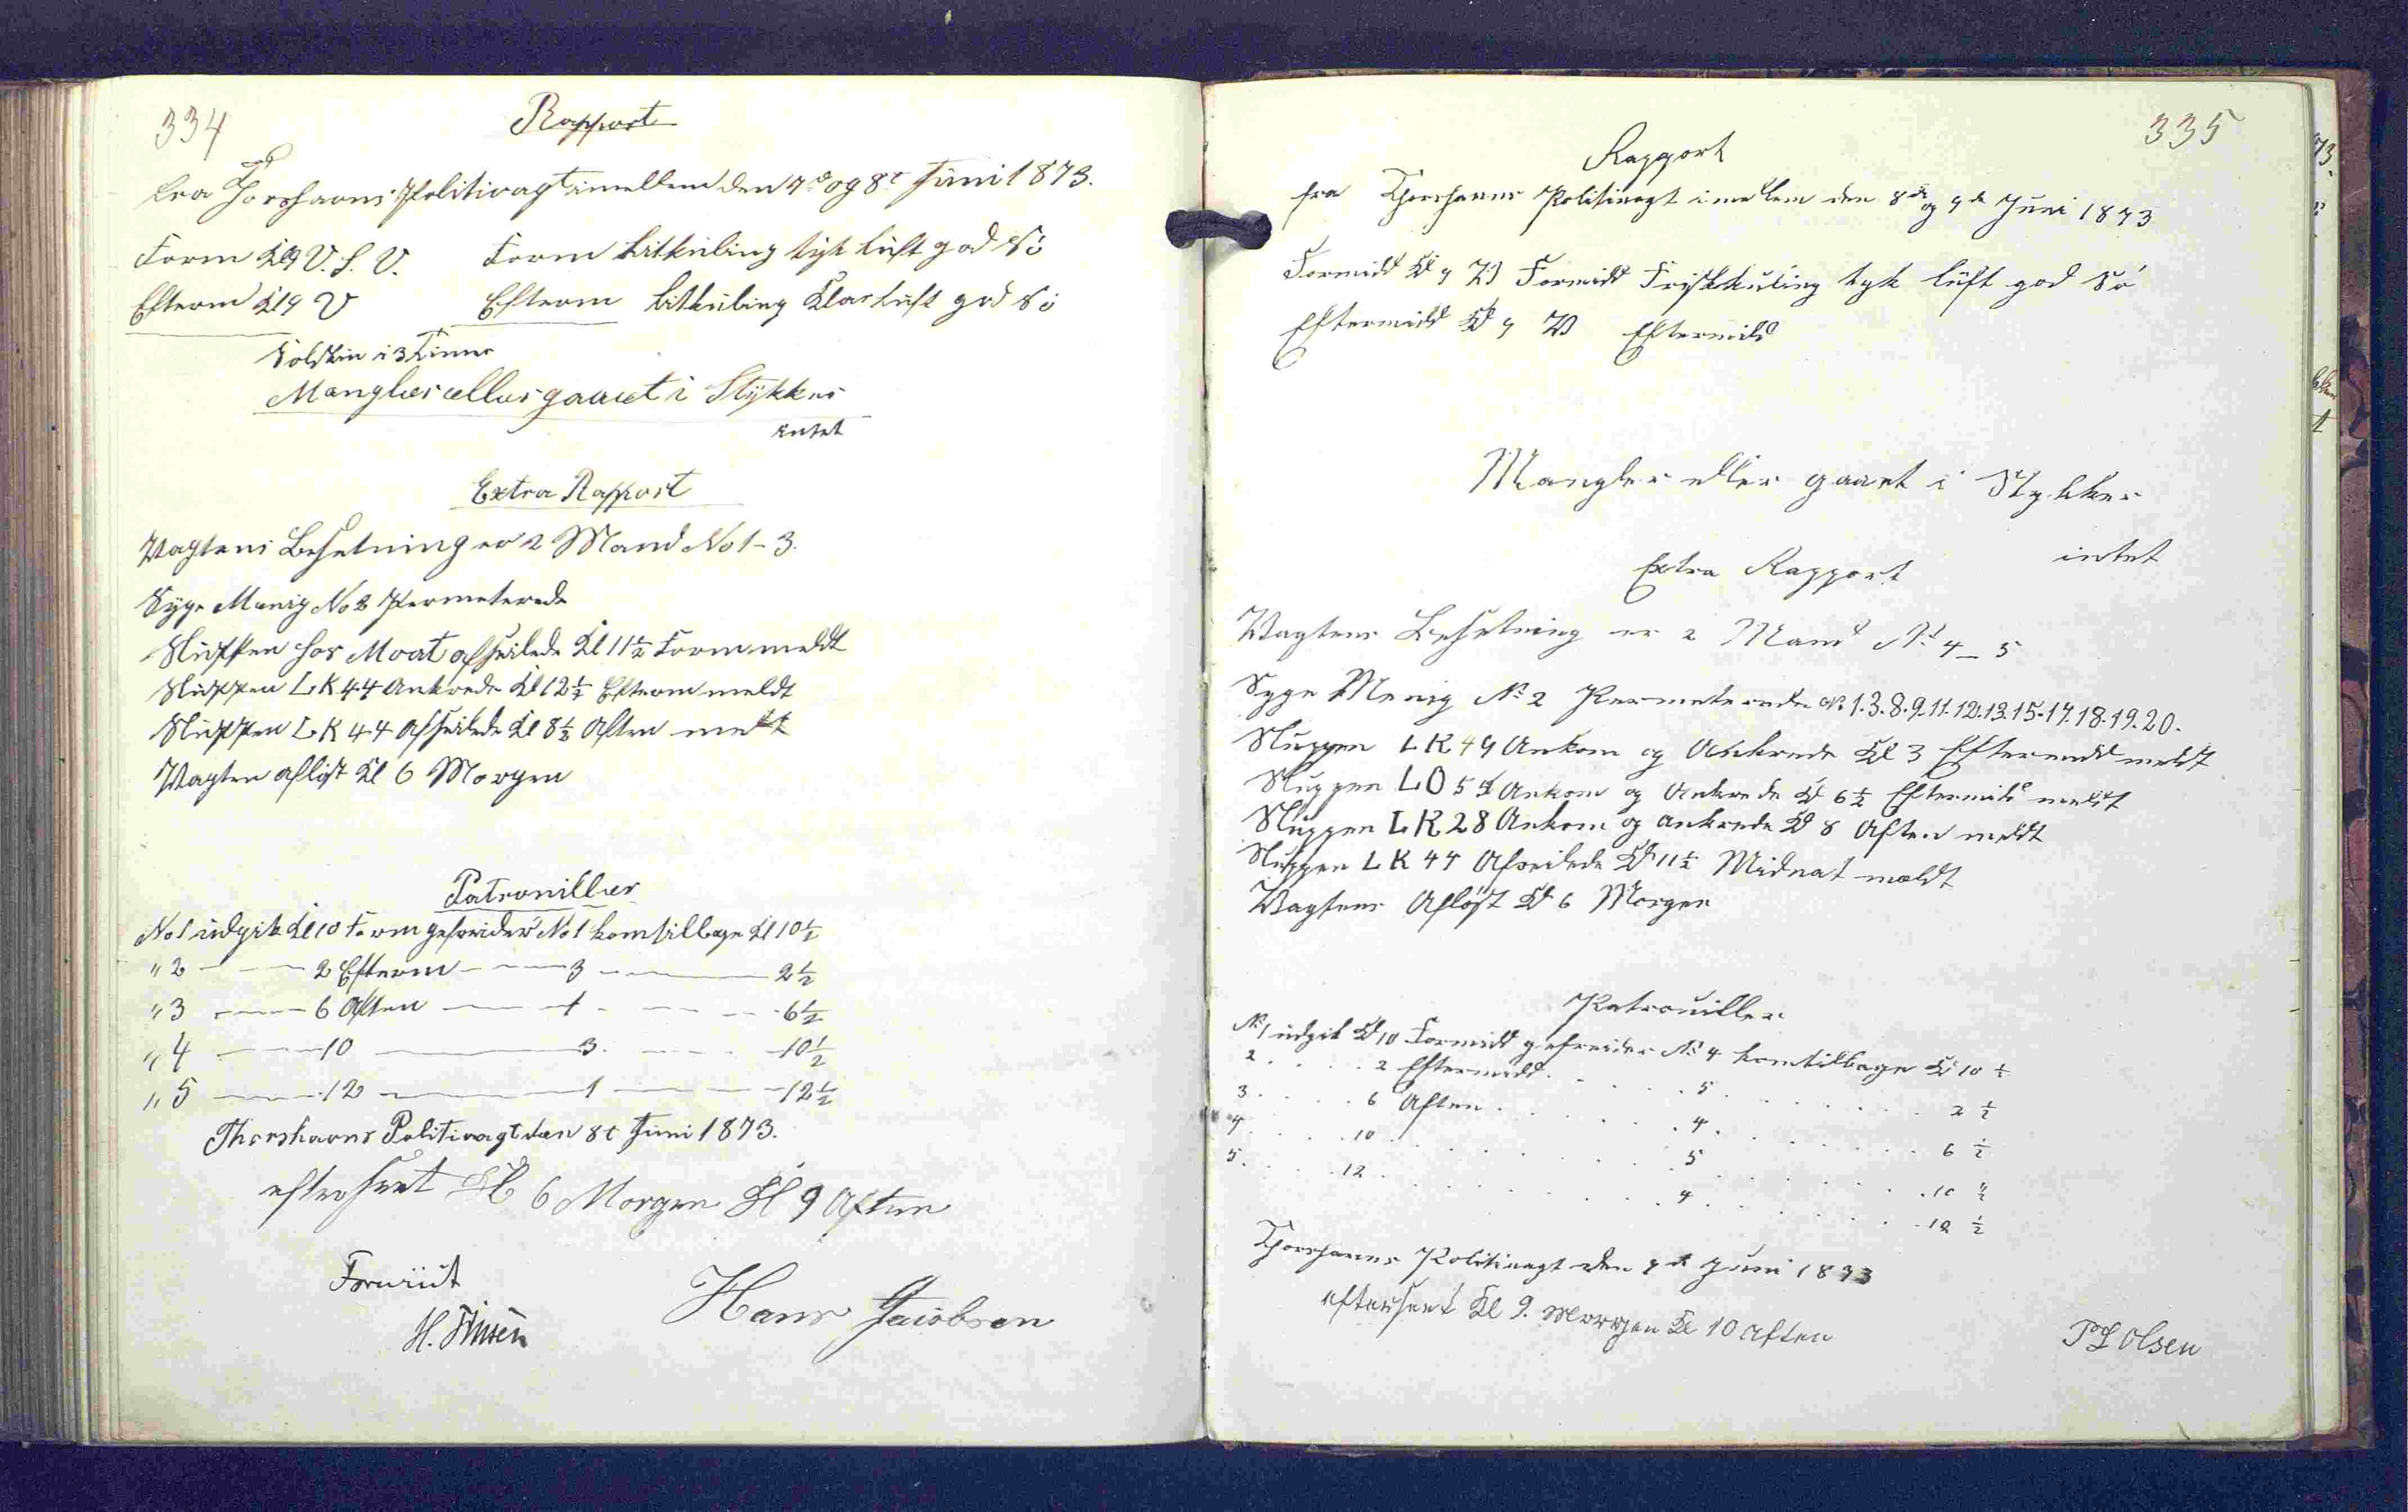 334
Rapport
fra Thorshavns Politivagt imellem den 7de og 8e Juni 1873.
Form Kl 9 V. S. V. Form Litkuling tyk luft god Sö
Efterm Kl 9 V Efterm Litkuling Klar luft god Sö
Solskin i 3 Timer
Mangler eller gaaet i Stykker
intet
Extra Rapport
Vagtens Besetning er 2 Mand No 1 - 3.
Syge Menig No 2 Permeterede
Sluppen hos Mort afseilede Kl 11½ Form meldt
Sluppen LK 44 Ankrede Kl 12½ Efterm meldt
Sluppen LK 44 afseilede Kl 8½ Aften meldt
Vagten aflöst Kl 6 Morgen
Patrouiller
No 1 udgik Kl 10 Form gefreider No 1 kom tilbage Kl 10½
" 2 - - - 2 Efterm - - - 3 - - - 2½
" 3 - - - 6 Aften - - - 1 - - - 6½
" 4 - - - 10 - - - 3. - - - 10½
" 5 - - - 12 - - - 1 - - - 12½
Thorshavns Politivagt den 8t Juni 1873.
efterseet Kl 6 Morgen Kl 9 Aften
H.
Hans Jacobsen
335
Rapport
fra Thorshavns Politivagt imellem den 8de og 9de Juni 1873
Formidd Kl 9 V Formidd Friskkuling tyk luft god Sö
Eftermidd Kl 9 V Eftermidd
Mangler eller gaaet i Stykker
intet
Extra Rapport
Vagtens Besetning er 2 Mand No 4 - 5
Syge Menig No 2 Permeterede No 1.3.8.9.11.12.13.15.17.18.19.20.
Sluppen LK 49 Ankom og Ankrede Kl 3 Eftermidd meldt
Sluppen LO 54 Ankom og Ankrede Kl 6½ Eftermidd meldt
Sluppen LK 28 Ankom og ankrede Kl 8 Aften meldt
Sluppen LK 44 Afseilede Kl 11½ Midnat meldt
Vagtens Aflöst Kl 6 Morgen
Patrouiller
No 1 udgik Kl 10 Formidd gefreider No 4 kom tilbage Kl 10 ½
2 . . . . 2 Eftermidd . . . 5 . . . . 2 ½
3 . . . . 6 Aften . . . . 4 . . . . 6 ½
4 . . . . 10 . . . . 5 . . . . 10 ½
5. . . . 12 . . . . 4 . . . . 12 ½
Thorshavns Politivagt den 9de Juni 1873
efterseet Kl 9. Morgen Kl 10 Aften
Olsen